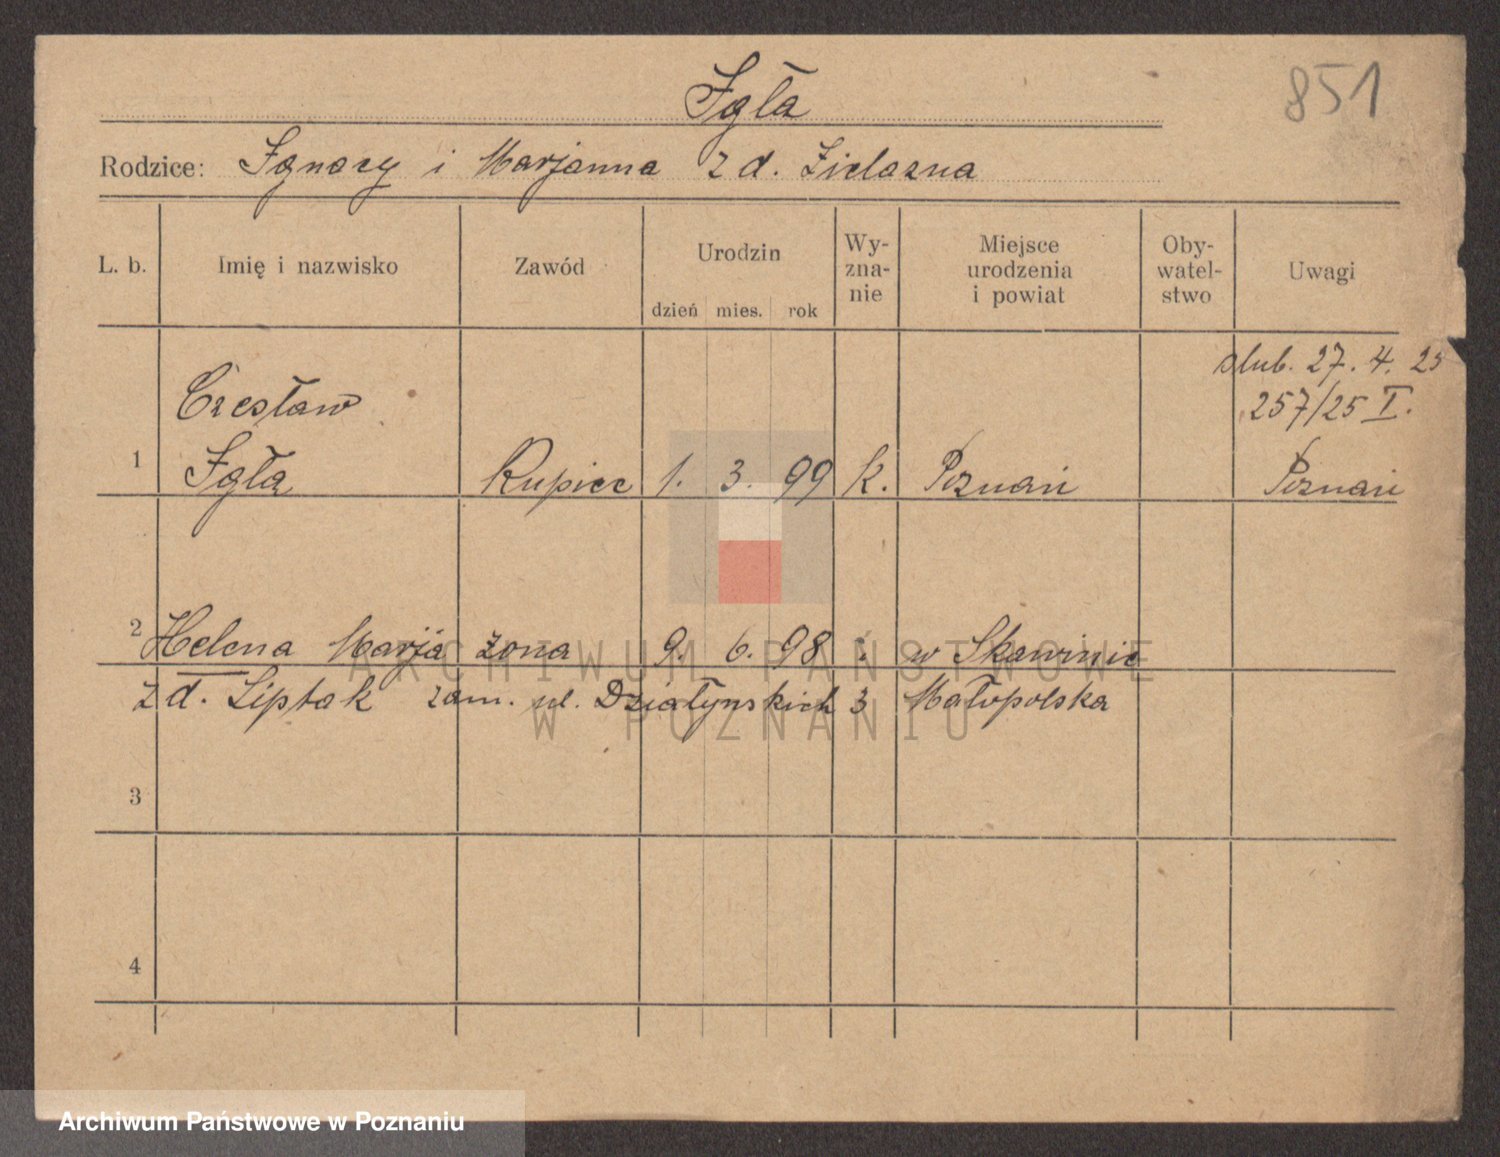 Igła
851
Rodzice: Ignacy i Marjanna z d. Zielazna
L. b. Imię i nazwisko Zawód Urodzin dzień mies. rok Wy-zna-nie Miejsce urodzenia i powiat Oby-watel-stwo Uwagi
ślub. 27. 4. 25
Czesław 257/25 I.
1 Igła Kupiec 1. 3. 99 k. Poznań Poznań
2 Helena Marja żona 9. 6. 98 w Skawinie
z d. Liptak zam. ul. Działyńskich 3 Małopolska
3
4
ARCHIWUM PAŃSTWOWE
W POZNANIU
Archiwum Państwowe w Poznaniu